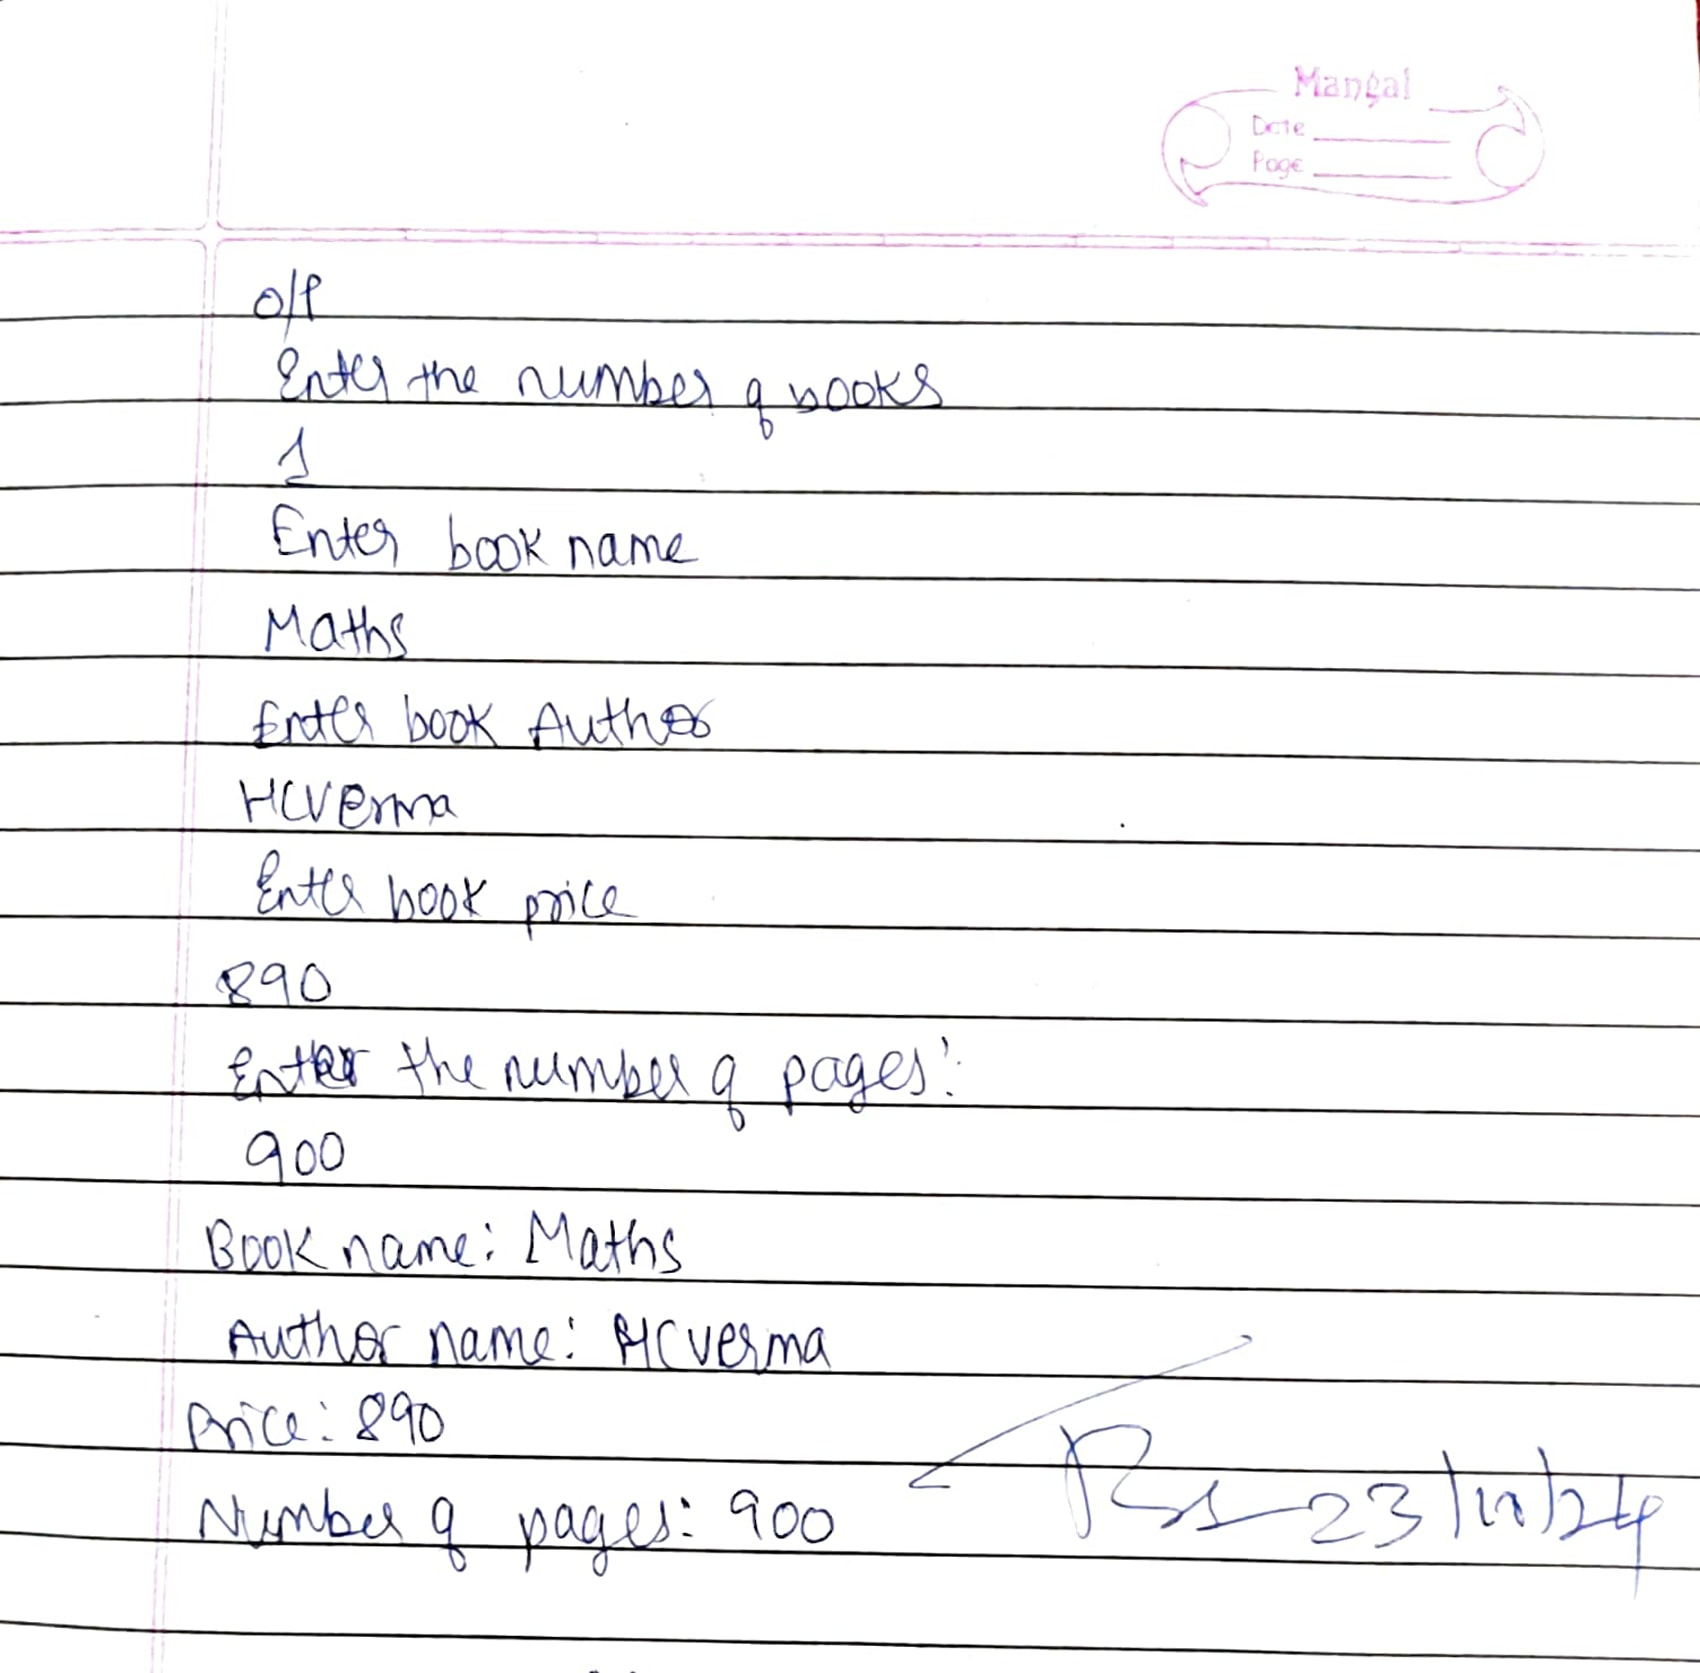 Mangal
Date
Page
O/P
Enter the number of books
1
Enter book name
Maths
Enter book Author
HCVerma
Enter book price
890
Enter the number of pages:
900
Book name: Maths
Author name: HCVerma
Price: 890
Number of pages: 900
23/10/24